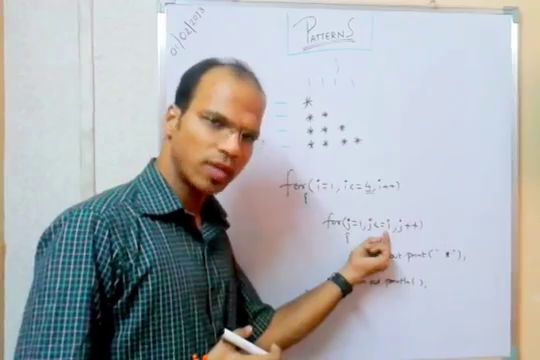 01/02/2013
PATTERNS
*
* *
* * *
* * * *
for(i=1,i<=4,i++)
for(j=1,j<=i,j++)
out.print("*");
out.println();